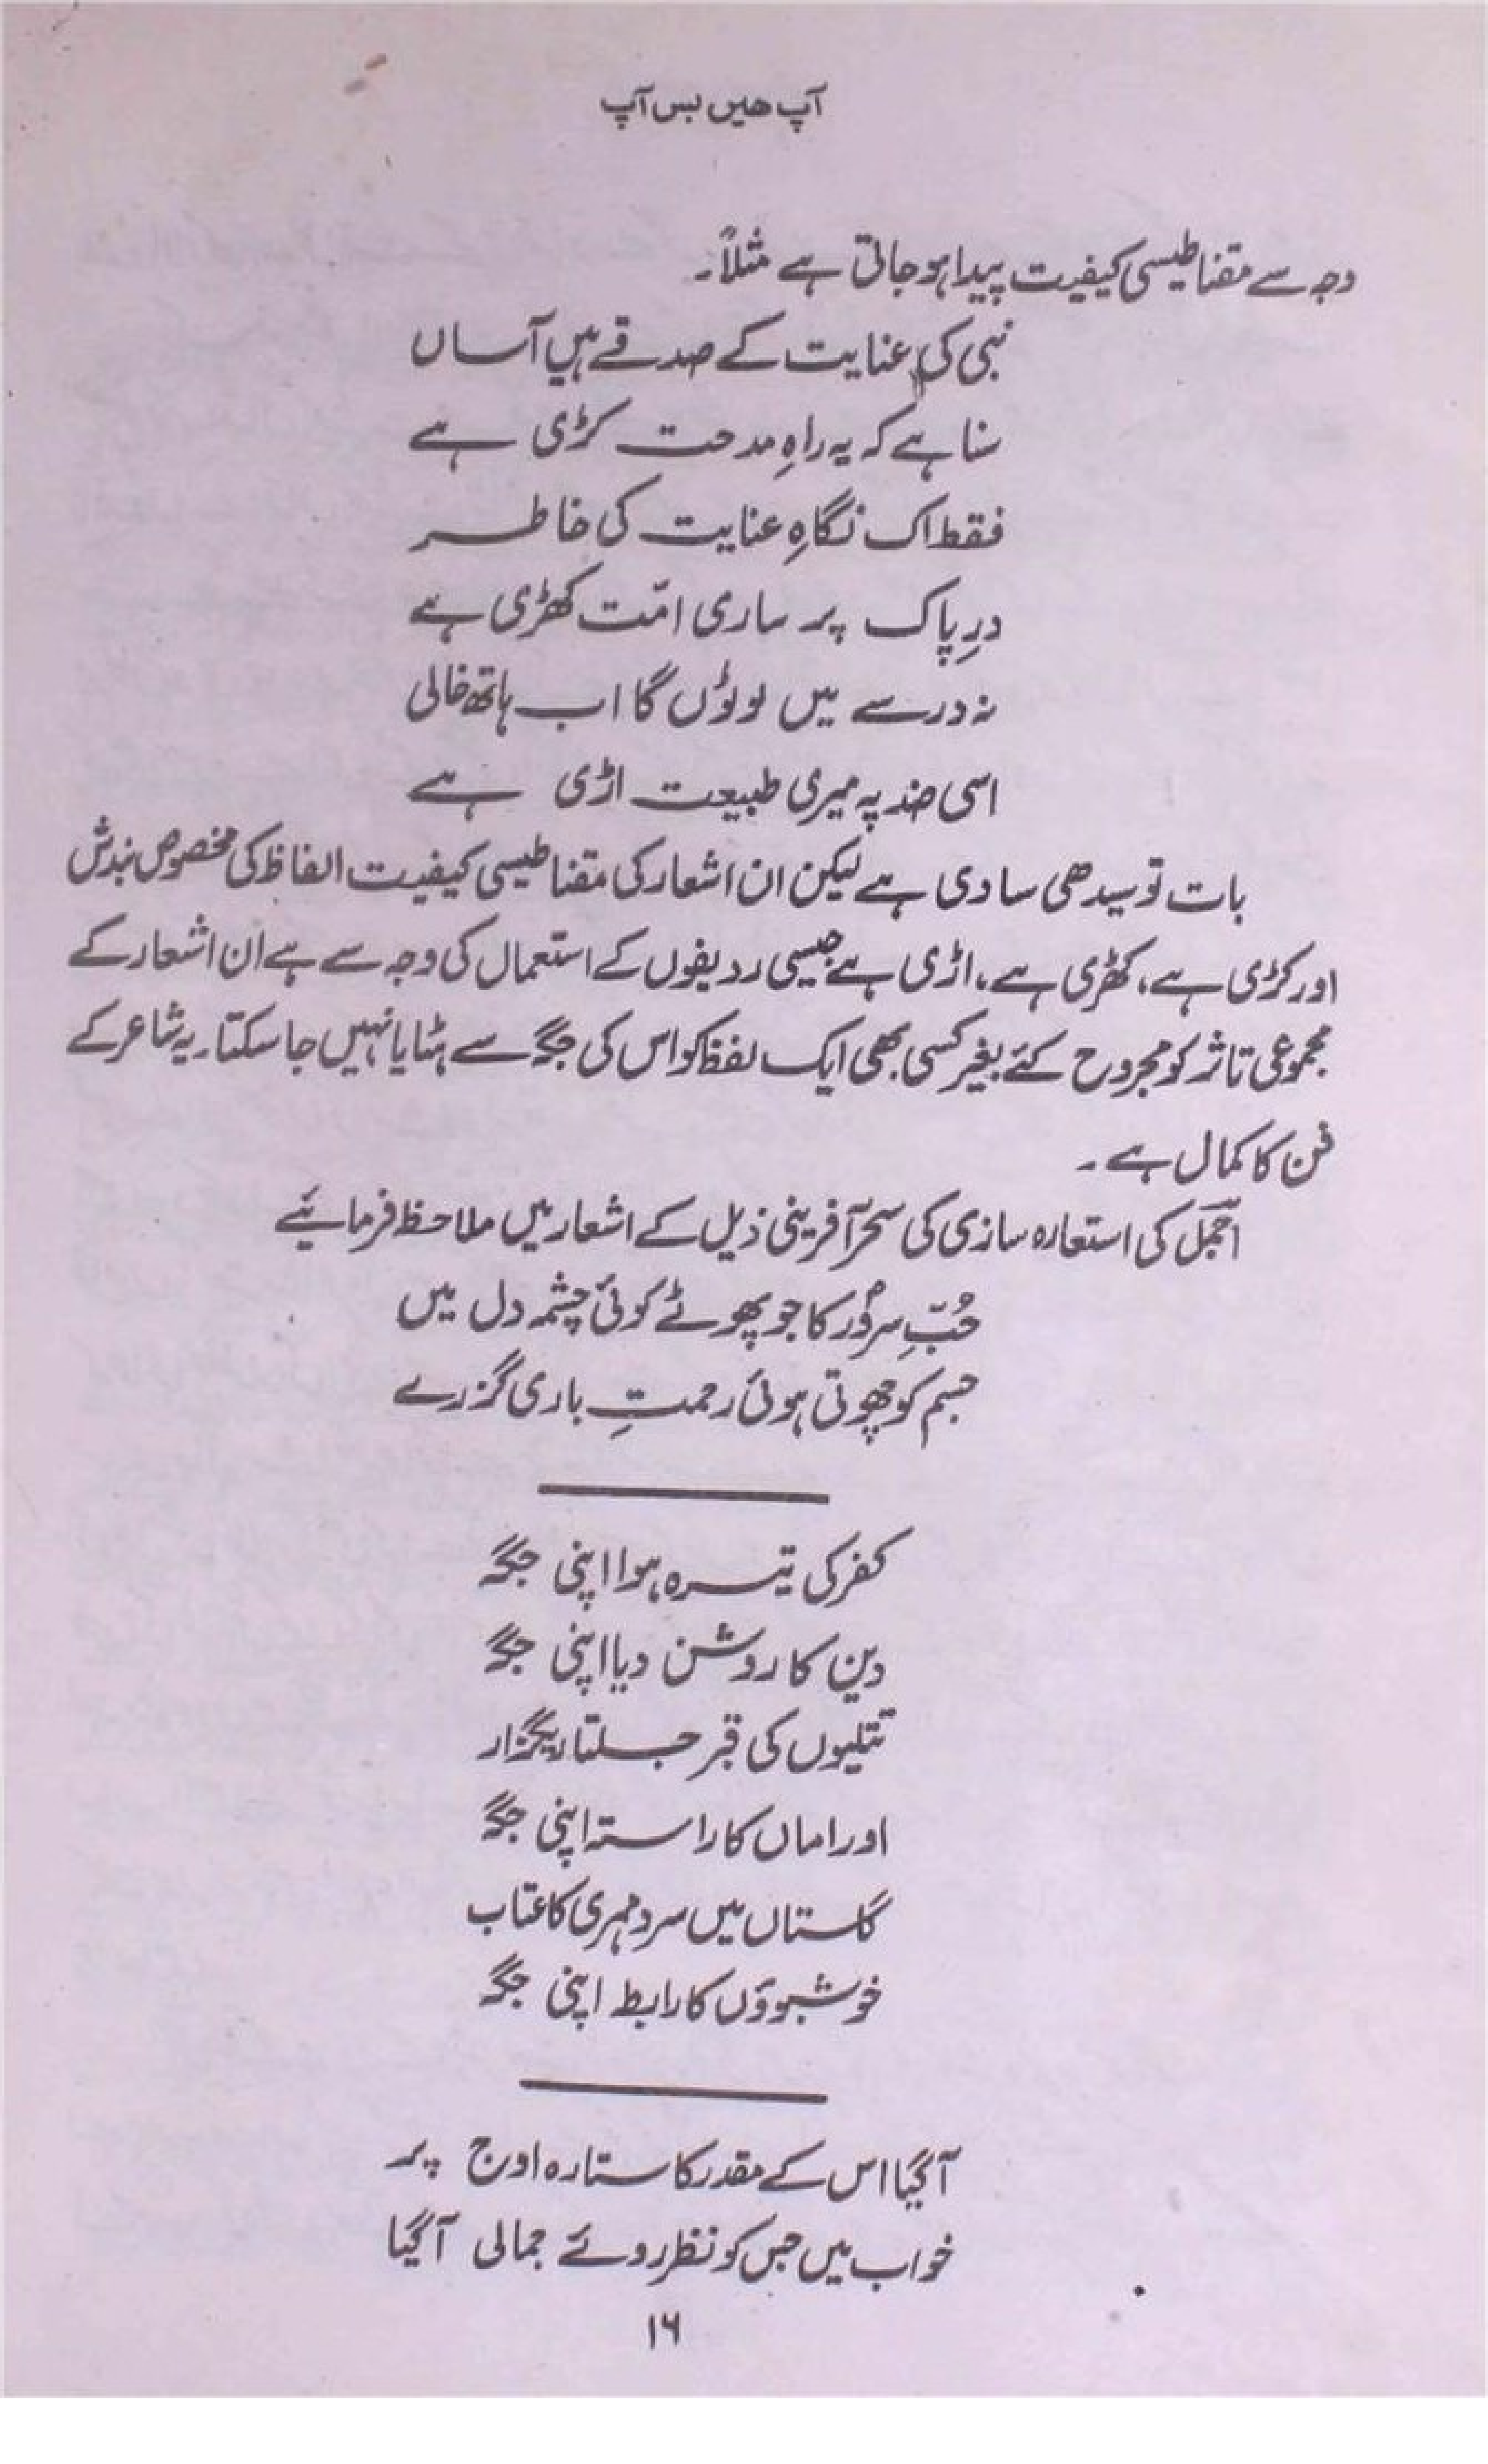 آپ ھیں بس آپ
وجہ سے مقناطیسی کیفیت پیدا ہو جاتی ہے مثلاً۔
نبی کی عنایت کے صدقے ہیں آساں
سنا ہے کہ یہ راہِ مدحت کڑی ہے
فقط اک نگاہِ عنایت کی خاطر
درِ پاک پر ساری امّت کھڑی ہے
نہ در سے میں لوٹوں گا اب ہاتھ خالی
اسی ضد پہ میری طبیعت اڑی ہے
بات تو سیدھی سادی ہے لیکن ان اشعار کی مقناطیسی کیفیت الفاظ کی مخصوص بندش
اور کڑی ہے، کھڑی ہے، اڑی ہے جیسی ردیفوں کے استعمال کی وجہ سے ہے ان اشعار کے
مجموعی تاثر کو مجروح کئے بغیر کسی بھی ایک لفظ کو اس کی جگہ سے ہٹایا نہیں جا سکتا۔ یہ شاعر کے
فن کا کمال ہے۔
اجمل کی استعارہ سازی کی سحر آفرینی ذیل کے اشعار میں ملاحظہ فرمائیے
حُبِّ سرورؐ کا جو پھوٹے کوئی چشمہ دل میں
جسم کو چھوتی ہوئی رحمتِ باری گزرے
کفر کی تیرہ ہوا اپنی جگہ
دین کا روشن دیا اپنی جگہ
تتلیوں کی قبر جلتا ریگزار
اور اماں کا راستہ اپنی جگہ
گلستاں میں سرد مہری کا عتاب
خوشبوؤں کا رابطہ اپنی جگہ
آگیا اس کے مقدر کا ستارہ اوج پر
خواب میں جس کو نظر روئے جمالی آگیا
۱۶